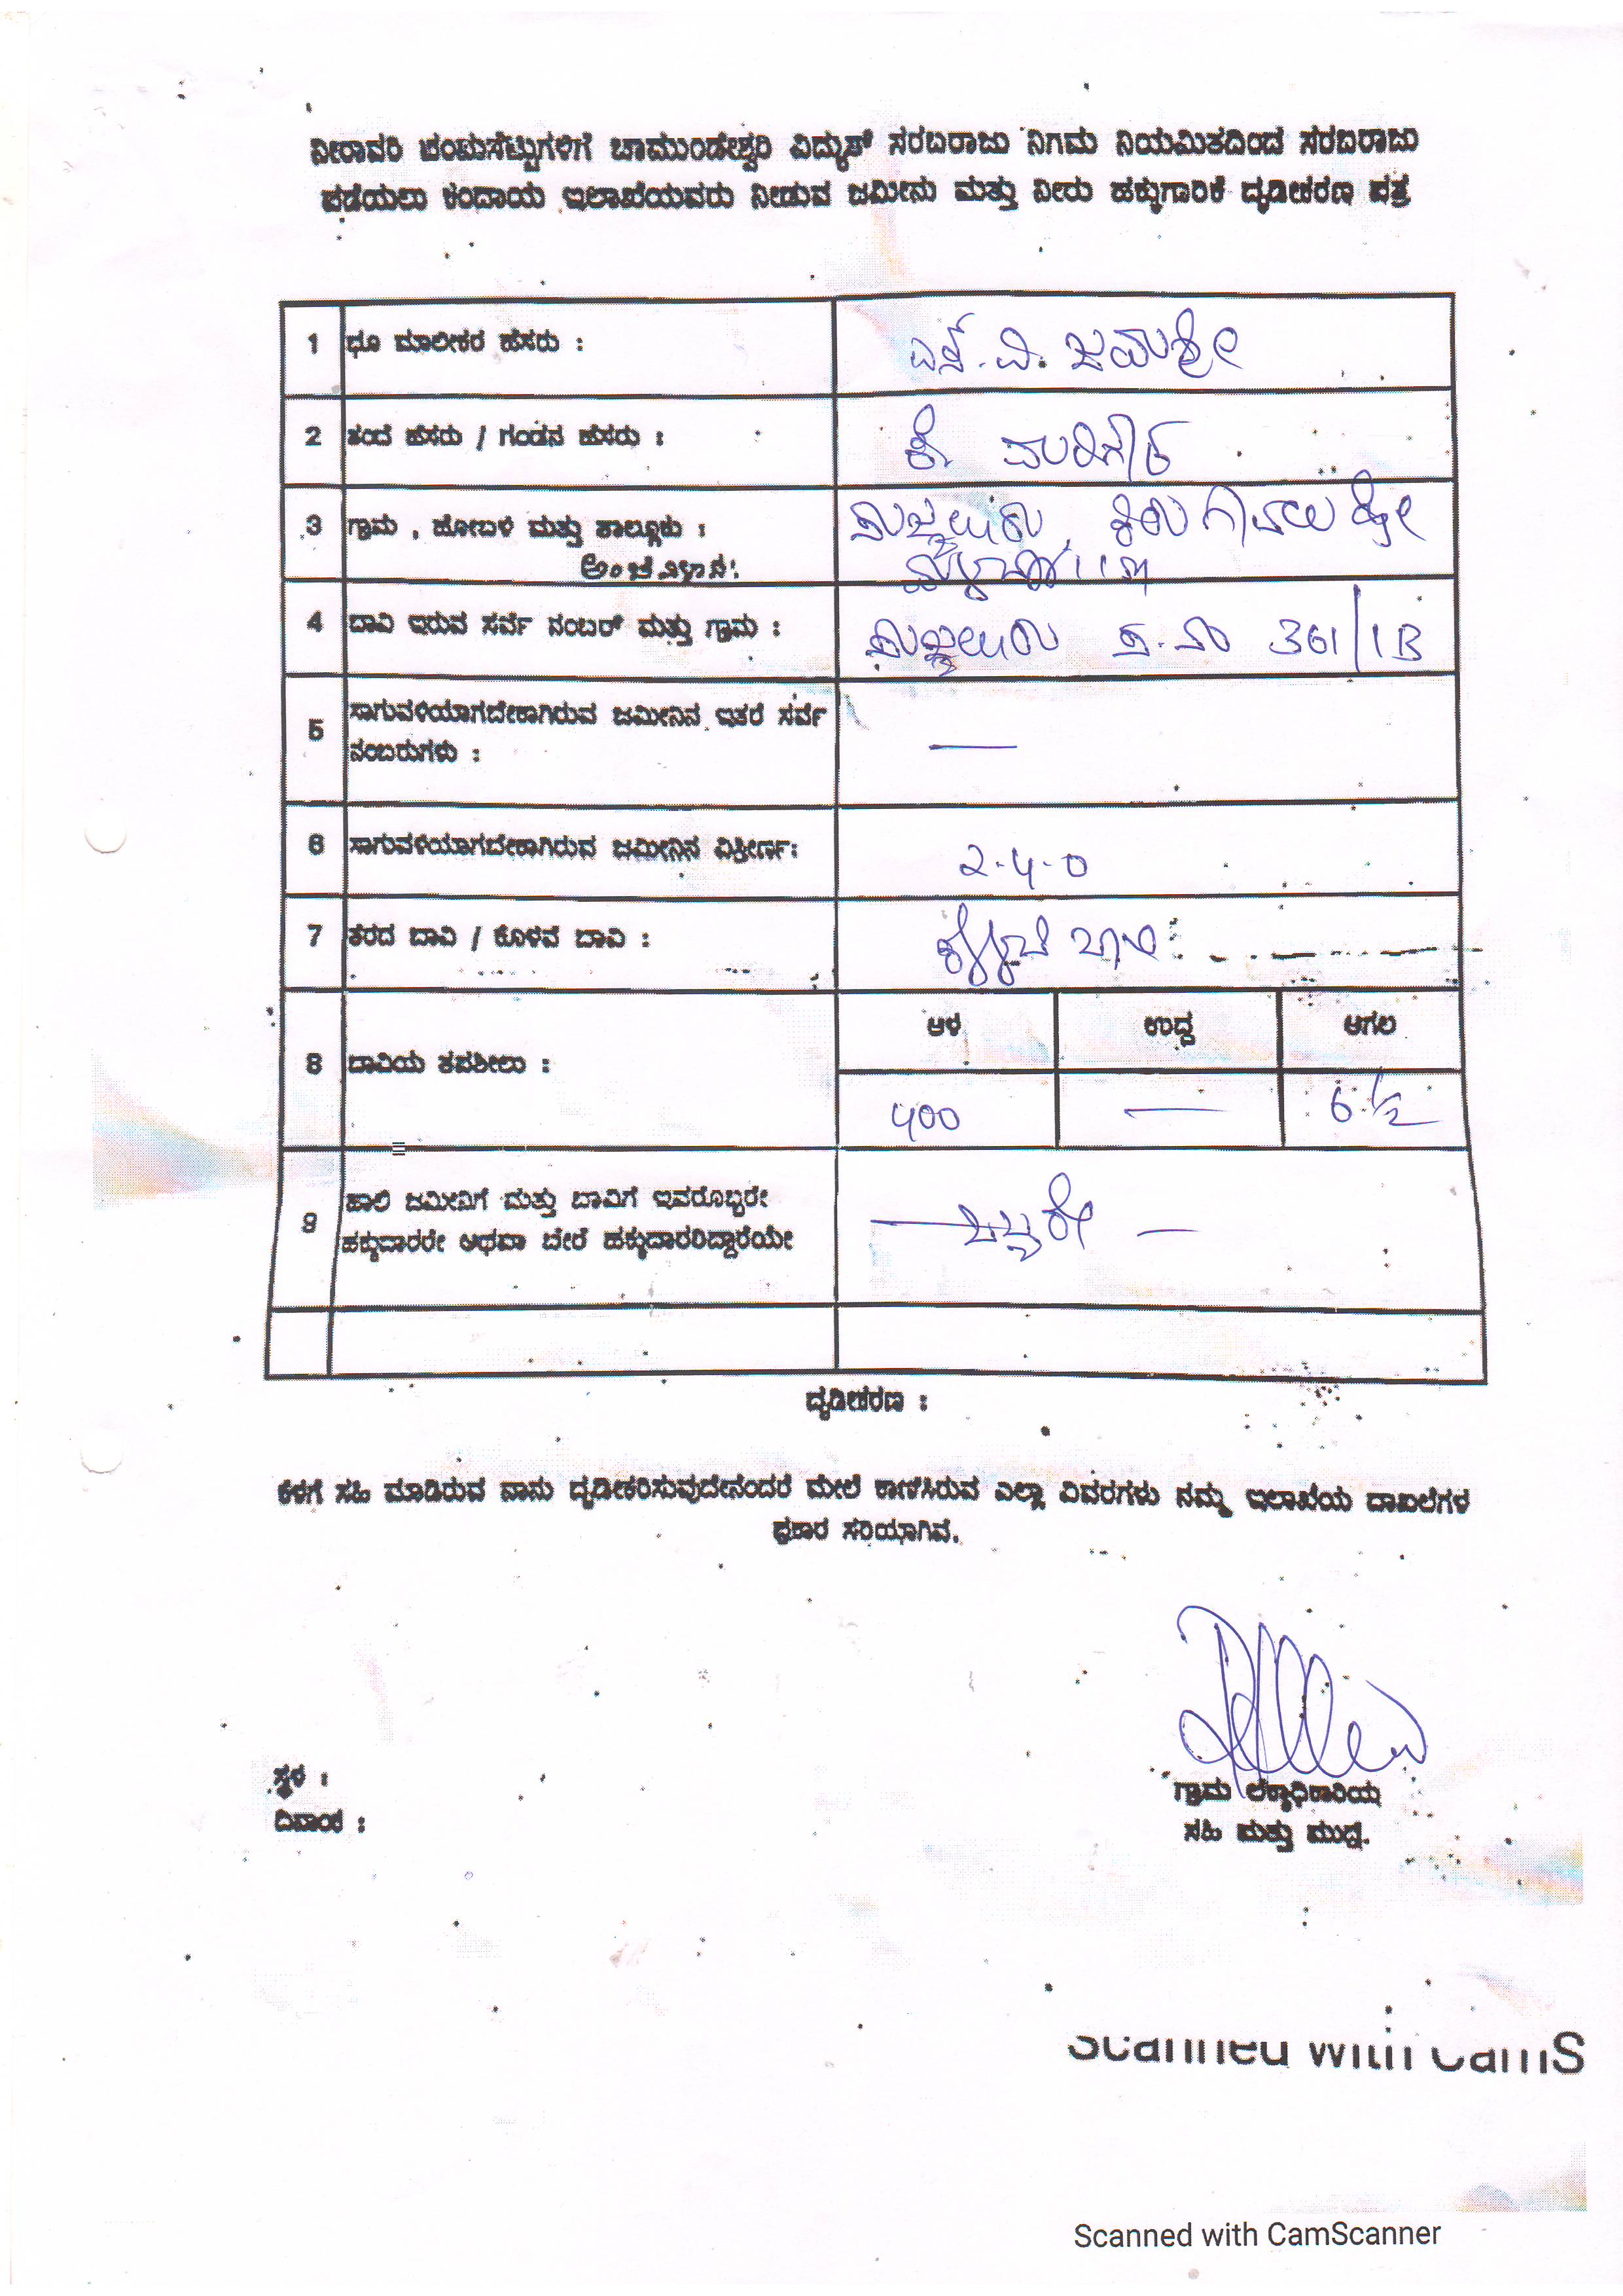 ನೀರಾವರಿ ಪಂಪುಸೆಟ್ಟುಗಳಿಗೆ ಚಾಮುಂಡೇಶ್ವರಿ ವಿದ್ಯುತ್ ಸರಬರಾಜು ನಿಗಮ ನಿಯಮಿತದಿಂದ ಸರಬರಾಜು
ಪಡೆಯಲು ಕಂದಾಯ ಇಲಾಖೆಯವರು ನೀಡುವ ಜಮೀನು ಮತ್ತು ನೀರು ಹಕ್ಕುಗಾರಿಕೆ ದೃಡೀಕರಣ ಪತ್ರ
1 ಭೂ ಮಾಲೀಕರ ಹೆಸರು : ಎಸ್. ವಿ. ಜಯಶ್ರೀ
2 ತಂದೆ ಹೆಸರು / ಗಂಡನ ಹೆಸರು : ಕೆ.
3 ಗ್ರಾಮ , ಹೋಬಳಿ ಮತ್ತು ತಾಲ್ಲೂಕು :
ಅಂಚೆ ವಿಳಾಸ:
4 ಬಾವಿ ಇರುವ ಸರ್ವೆ ನಂಬರ್ ಮತ್ತು ಗ್ರಾಮ : ಸ. ನಂ 361/1B
5 ಸಾಗುವಳಿಯಾಗಬೇಕಾಗಿರುವ ಜಮೀನಿನ ಇತರೆ ಸರ್ವೆ
ನಂಬರುಗಳು : —
6 ಸಾಗುವಳಿಯಾಗಬೇಕಾಗಿರುವ ಜಮೀನಿನ ವಿಸ್ತೀರ್ಣ: 2-4-0
7 ತೆರದ ಬಾವಿ / ಕೊಳವೆ ಬಾವಿ : ಕೊಳವೆ ಬಾವಿ
8 ಬಾವಿಯ ತಪಶೀಲು :
ಆಳ ಉದ್ದ ಅಗಲ
400 — 6 1/2
9 ಹಾಲಿ ಜಮೀನಿಗೆ ಮತ್ತು ಬಾವಿಗೆ ಇವರೊಬ್ಬರೇ
ಹಕ್ಕುದಾರರೇ ಅಥವಾ ಬೇರೆ ಹಕ್ಕುದಾರರಿದ್ದಾರೆಯೇ — ಒಬ್ಬರೇ —
ದೃಡೀಕರಣ :
ಕೆಳಗೆ ಸಹಿ ಮಾಡಿರುವ ನಾನು ದೃಡೀಕರಿಸುವುದೇನಂದರೆ ಮೇಲೆ ಕಾಣಿಸಿರುವ ಎಲ್ಲಾ ವಿವರಗಳು ನಮ್ಮ ಇಲಾಖೆಯ ದಾಖಲೆಗಳ
ಪ್ರಕಾರ ಸರಿಯಾಗಿವೆ.
ಸ್ಥಳ :
ದಿನಾಂಕ :
ಗ್ರಾಮ ಲೆಕ್ಕಾಧಿಕಾರಿಯ
ಸಹಿ ಮತ್ತು ಮುದ್ರೆ.
Scanned with CamS
Scanned with CamScanner